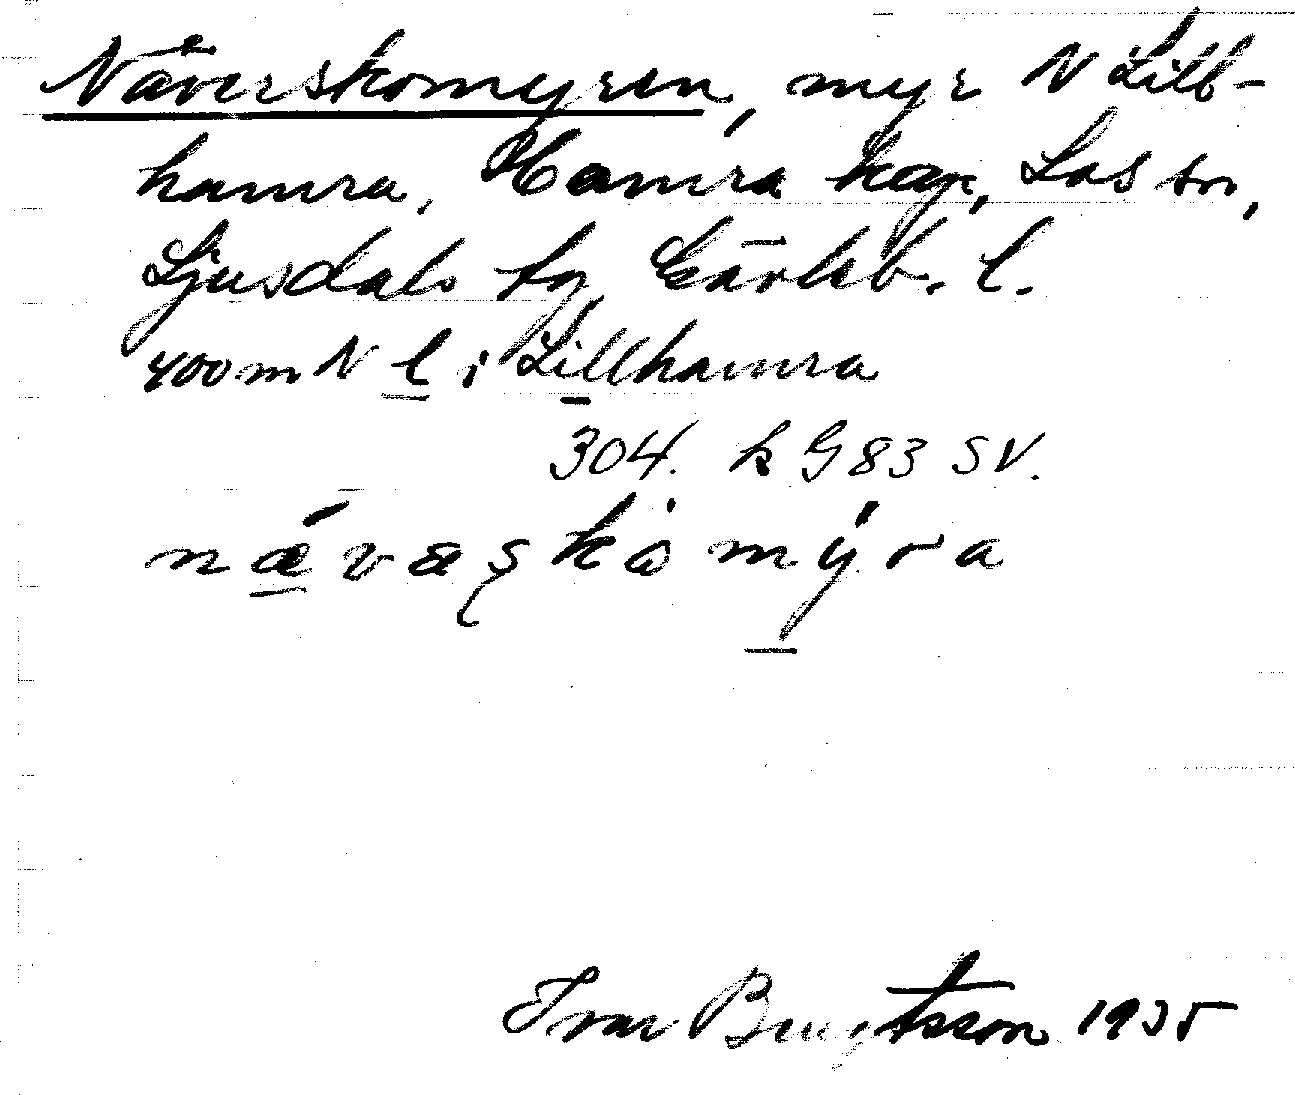 Näverskomyren, myr N Lill-
hamra, Hamra kap, Los sn,
Ljusdals tg, Gävleb. l.
400 m N l i Lillhamra
304. k G 83 SV.
nǽvæʂkòmýra
Ivar Bengtsson 1935